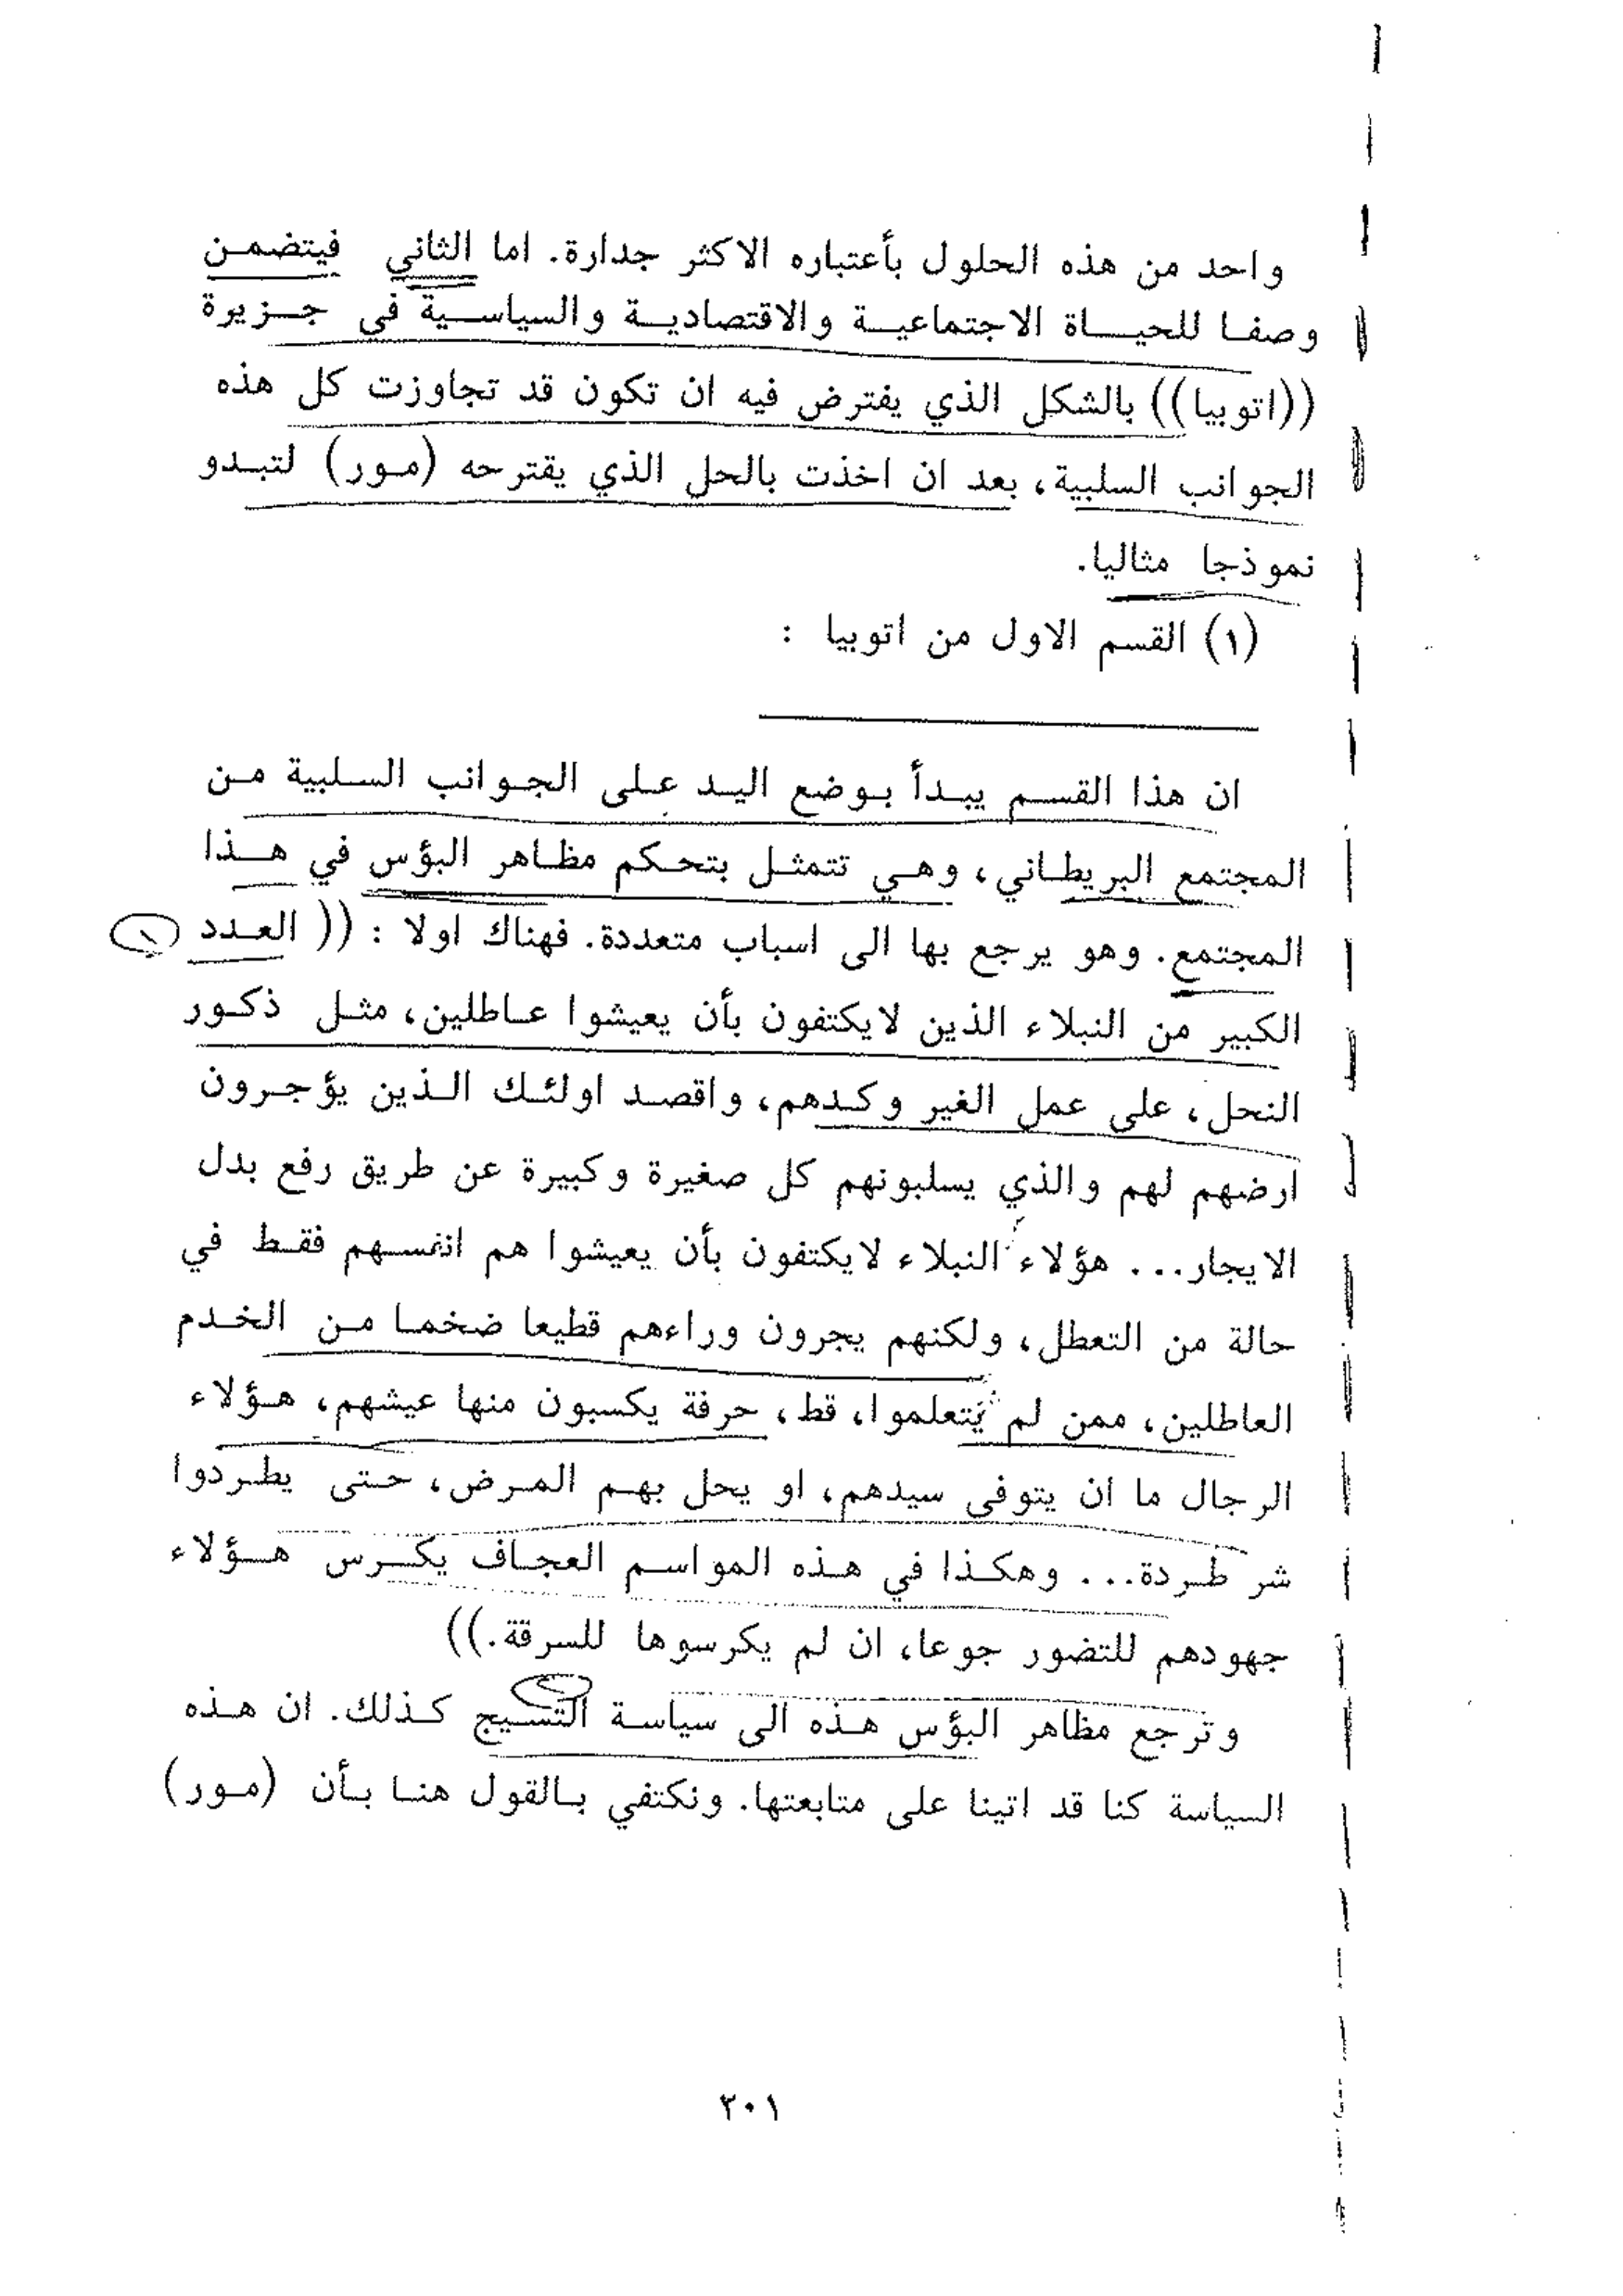 واحد من هذه الحلول بأعتباره الاكثر جدارة. اما الثاني فيتضمن
وصفا للحياة الاجتماعية والاقتصادية والسياسية في جزيرة
((اتوبيا)) بالشكل الذي يفترض فيه ان تكون قد تجاوزت كل هذه
الجوانب السلبية، بعد ان اخذت بالحل الذي يقترحه (مور) لتبدو
نموذجا مثاليا.
(١) القسم الاول من اتوبيا :
ان هذا القسم يبدأ بوضع اليد على الجوانب السلبية من
المجتمع البريطاني، وهي تتمثل بتحكم مظاهر البؤس في هذا
المجتمع. وهو يرجع بها الى اسباب متعددة. فهناك اولا : (( العدد ١
الكبير من النبلاء الذين لايكتفون بأن يعيشوا عاطلين، مثل ذكور
النحل، على عمل الغير وكدهم، واقصد اولئك الذين يؤجرون
ارضهم لهم والذي يسلبونهم كل صغيرة وكبيرة عن طريق رفع بدل
الايجار... هؤلاء النبلاء لايكتفون بأن يعيشوا هم انفسهم فقط في
حالة من التعطل، ولكنهم يجرون وراءهم قطيعا ضخما من الخدم
العاطلين، ممن لم يتعلموا، قط، حرفة يكسبون منها عيشهم، هؤلاء
الرجال ما ان يتوفى سيدهم، او يحل بهم المرض، حتى يطردوا
شر طردة... وهكذا في هذه المواسم العجاف يكرس هؤلاء
جهودهم للتضور جوعا، ان لم يكرسوها للسرقة.))
وترجع مظاهر البؤس هذه الى سياسة التسيج كذلك. ان هذه
السياسة كنا قد اتينا على متابعتها. ونكتفي بالقول هنا بأن (مور)
٢٠١